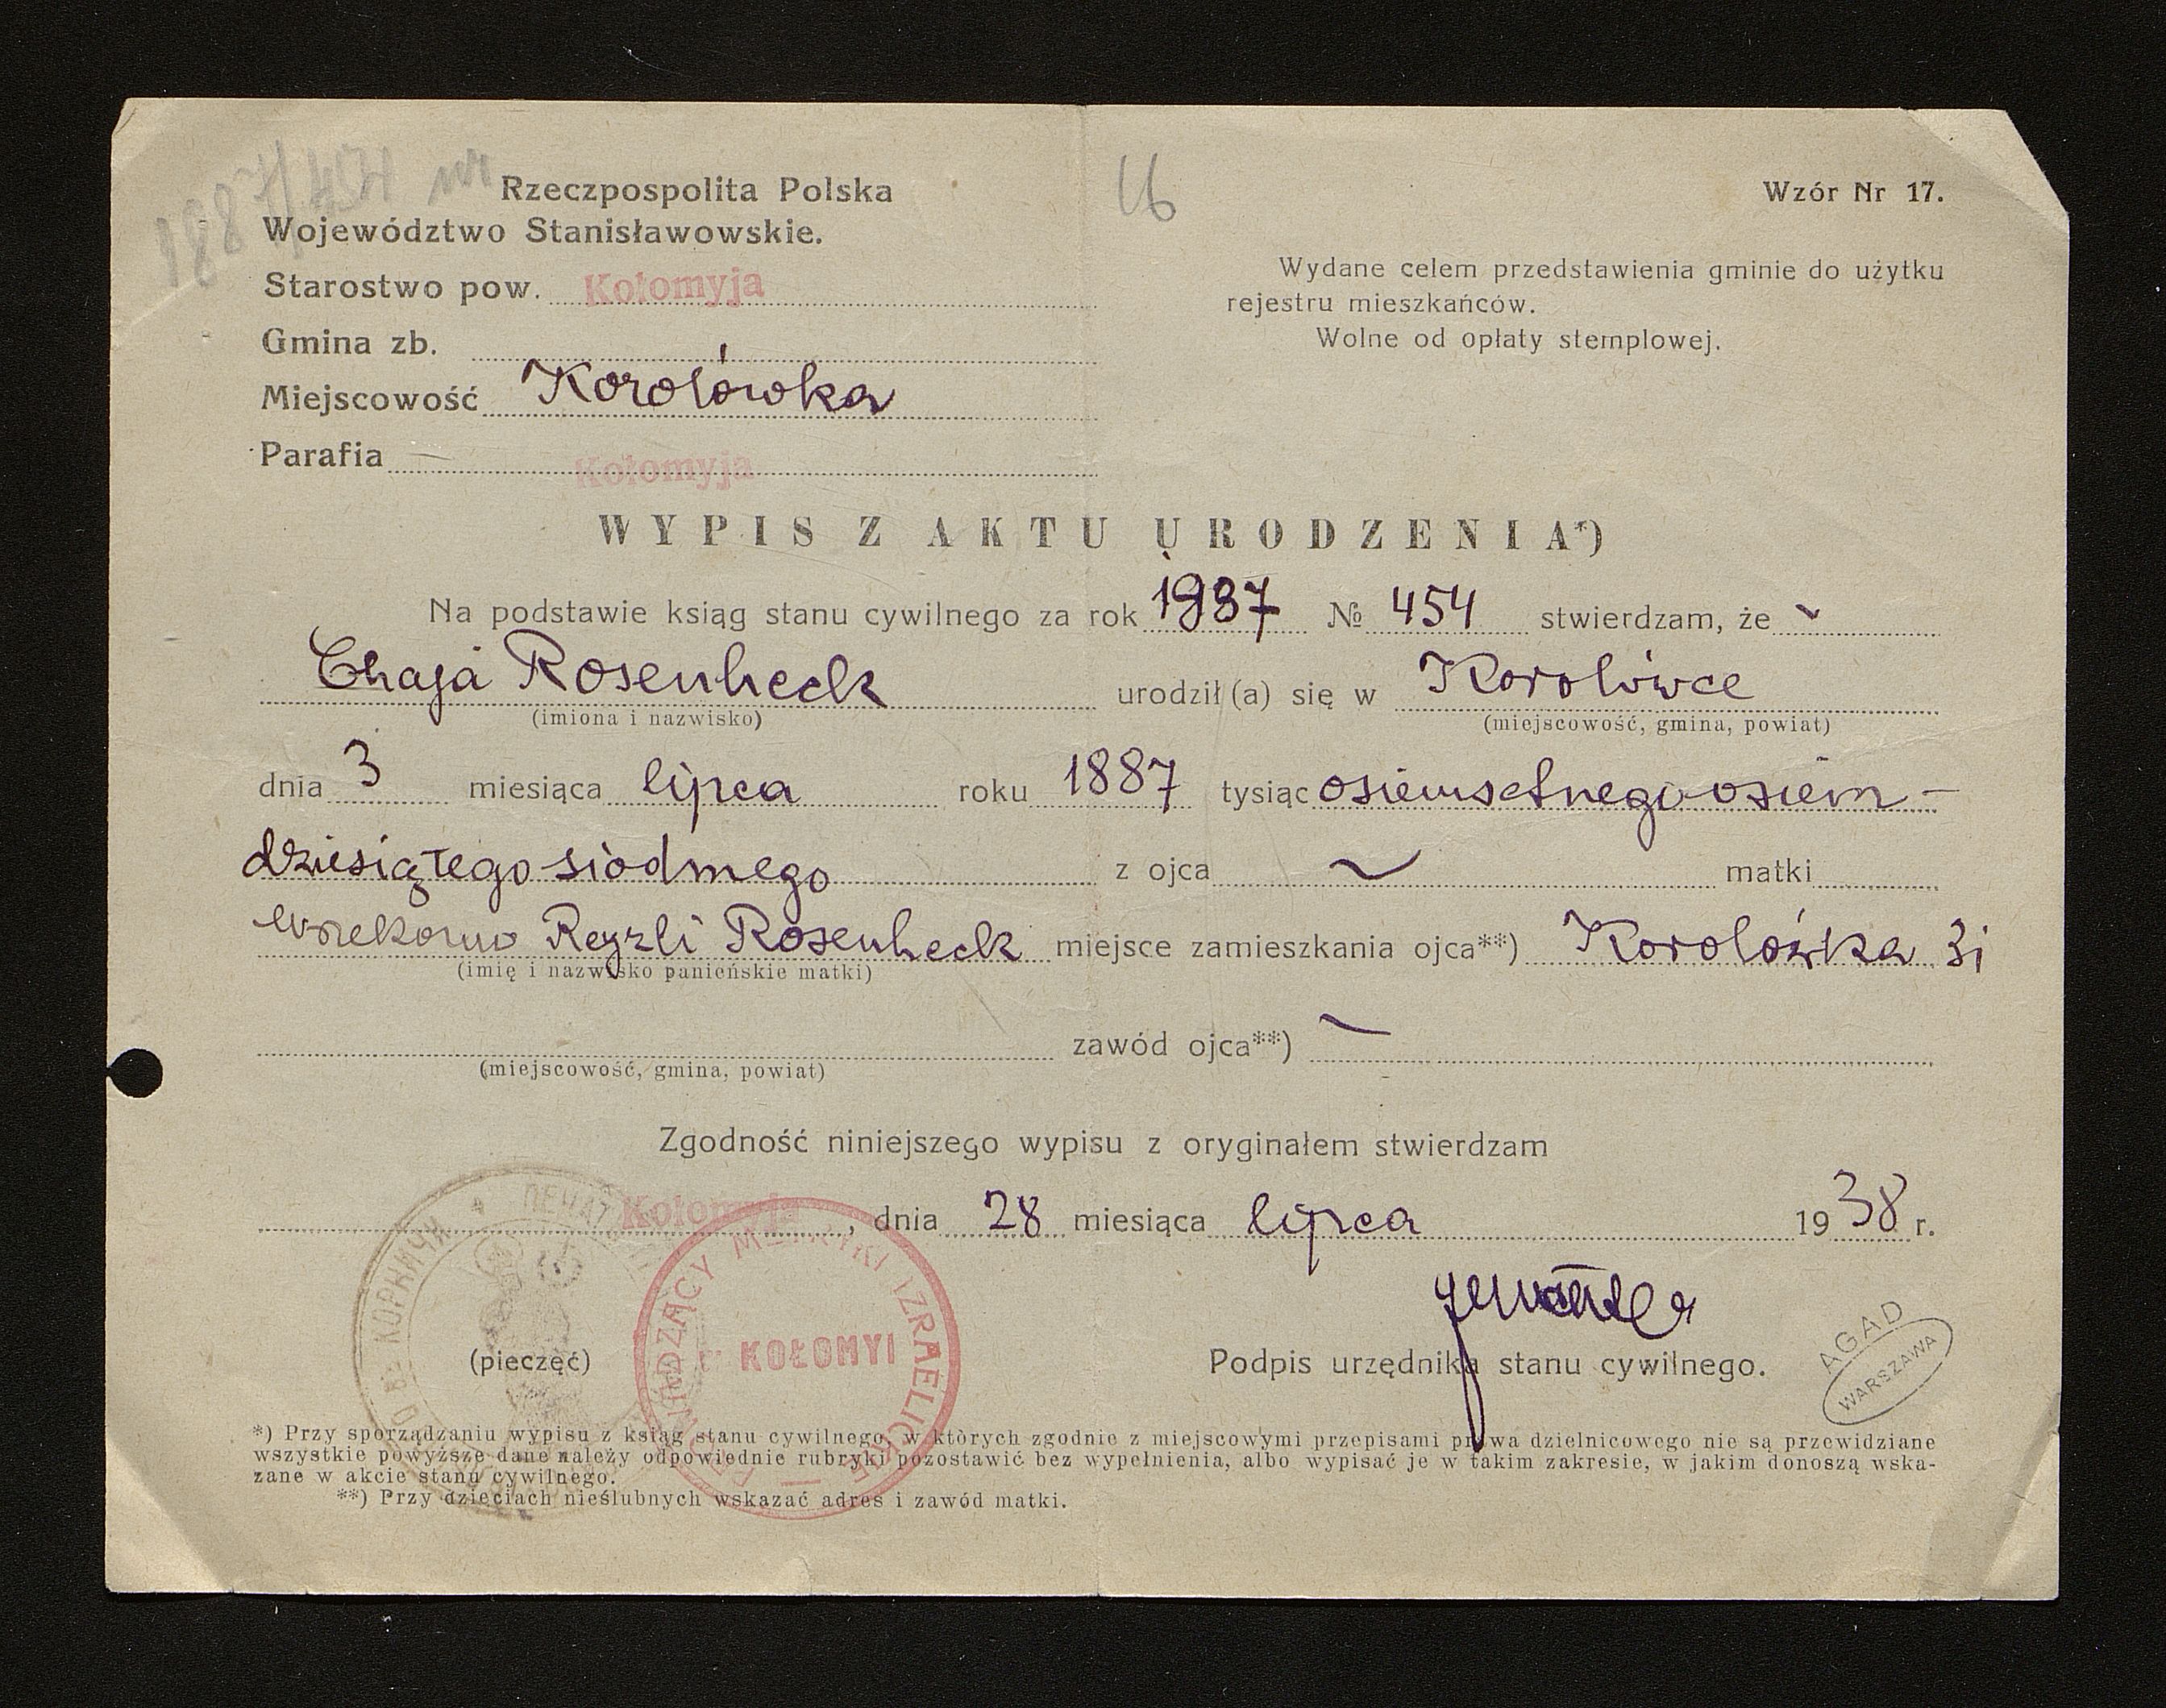 1887/454 ur
16
Rzeczpospolita Polska
Wzór Nr 17.
Województwo Stanisławowskie.
Starostwo pow. Kołomyja
Wydane celem przedstawienia gminie do użytku
rejestru mieszkańców.
Wolne od opłaty stemplowej.
Gmina zb.
Miejscowość Korolówka
Parafia — Kołomyja
WYPIS Z AKTU URODZENIA*)
Na podstawie ksiąg stanu cywilnego za rok 1937 № 454 stwierdzam, że
Chaja Rosenheck urodził(a) się w Korolówce
(imiona i nazwisko) (miejscowość, gmina, powiat)
dnia 3 miesiąca lipca roku 1887 tysiąc osiemsetnego osiem-
dziesiątego siodmego z ojca ~ matki
Reyzli Rosenheck miejsce zamieszkania ojca**) Korolówka
(imię i nazwisko panieńskie matki)
zawód ojca**) —
(miejscowość, gmina, powiat)
Zgodność niniejszego wypisu z oryginałem stwierdzam
Kołomyja, dnia 28 miesiąca lipca 1938 r.
PROWADZĄCY METRYKI IZRAELICKIE
KOŁOMYI
КОРНИЧИ
(pieczęć)
Podpis urzędnika stanu cywilnego.
AGAD
WARSZAWA
*) Przy sporządzaniu wypisu z ksiąg stanu cywilnego, w których zgodnie z miejscowymi przepisami prawa dzielnicowego nie są przewidziane
wszystkie powyższe dane należy odpowiednie rubryki pozostawić bez wypełnienia, albo wypisać je w takim zakresie, w jakim donoszą wska-
zane w akcie stanu cywilnego.
**) Przy dzieciach nieślubnych wskazać adres i zawód matki.